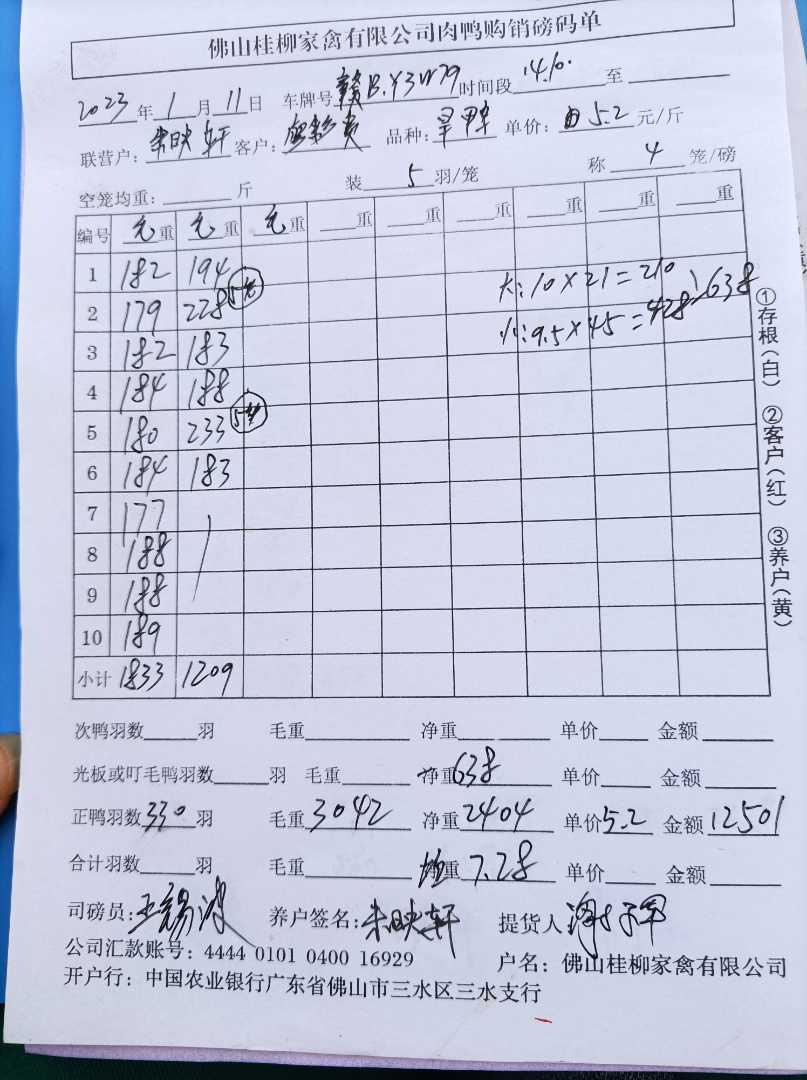 佛山桂柳家禽有限公司肉鸭购销磅码单
2023年1月11日 车牌号赣B.Y3W79时间段14.10.至
联营户:朱映轩 客户: 品种:旱鸭 单价:5.2元/斤
空笼均重: 斤 装5羽/笼 称4笼/磅
编号 毛重 毛重 毛重 重 重 重 重 重 重
1 182 194
2 179 228 5笼 大:10×21=210
3 182 183 小:9.5×45=428 638
4 184 188
5 180 233 5笼
6 184 183
7 177
8 188
9 188
10 189
小计 1833 1209
①存根(白) ②客户(红) ③养户(黄)
次鸭羽数 羽 毛重 净重 单价 金额
光板或叮毛鸭羽数 羽 毛重 净重638 单价 金额
正鸭羽数330羽 毛重3042 净重2404 单价5.2 金额12501
合计羽数 羽 毛重 均重7.28 单价 金额
司磅员:王锡波 养户签名:朱映轩 提货人
公司汇款账号:4444 0101 0400 16929 户名:佛山桂柳家禽有限公司
开户行:中国农业银行广东省佛山市三水区三水支行